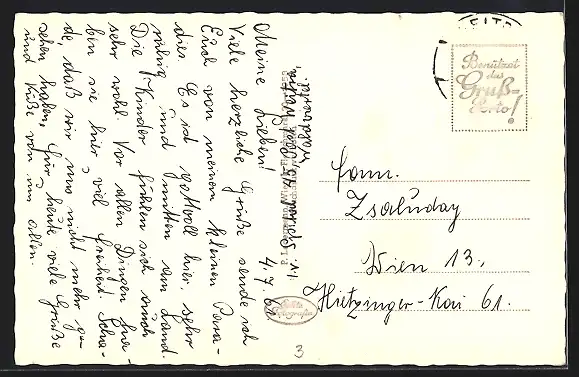 4.7.62
Meine Lieben!
Viele herzliche Grüße sende ich
Euch von meinem kleinen Para-
dies. Es ist gottvoll hier, sehr
ruhig und mitten am Land.
Die Kinder fühlen sich auch
sehr wohl. Vor allen Dingen ha-
ben sie hier viel Freiheit. Scha-
de, daß wir uns nicht mehr ge-
sehen haben. Für heute viele Grüße
und Küße von uns allen.
Waldviertel.
Benützet
das
Gruß-
Porto!
Fam.
Zsaluday
Wien 13.,
Hietzinger-Kai 61.
Echte
Fotografie
3